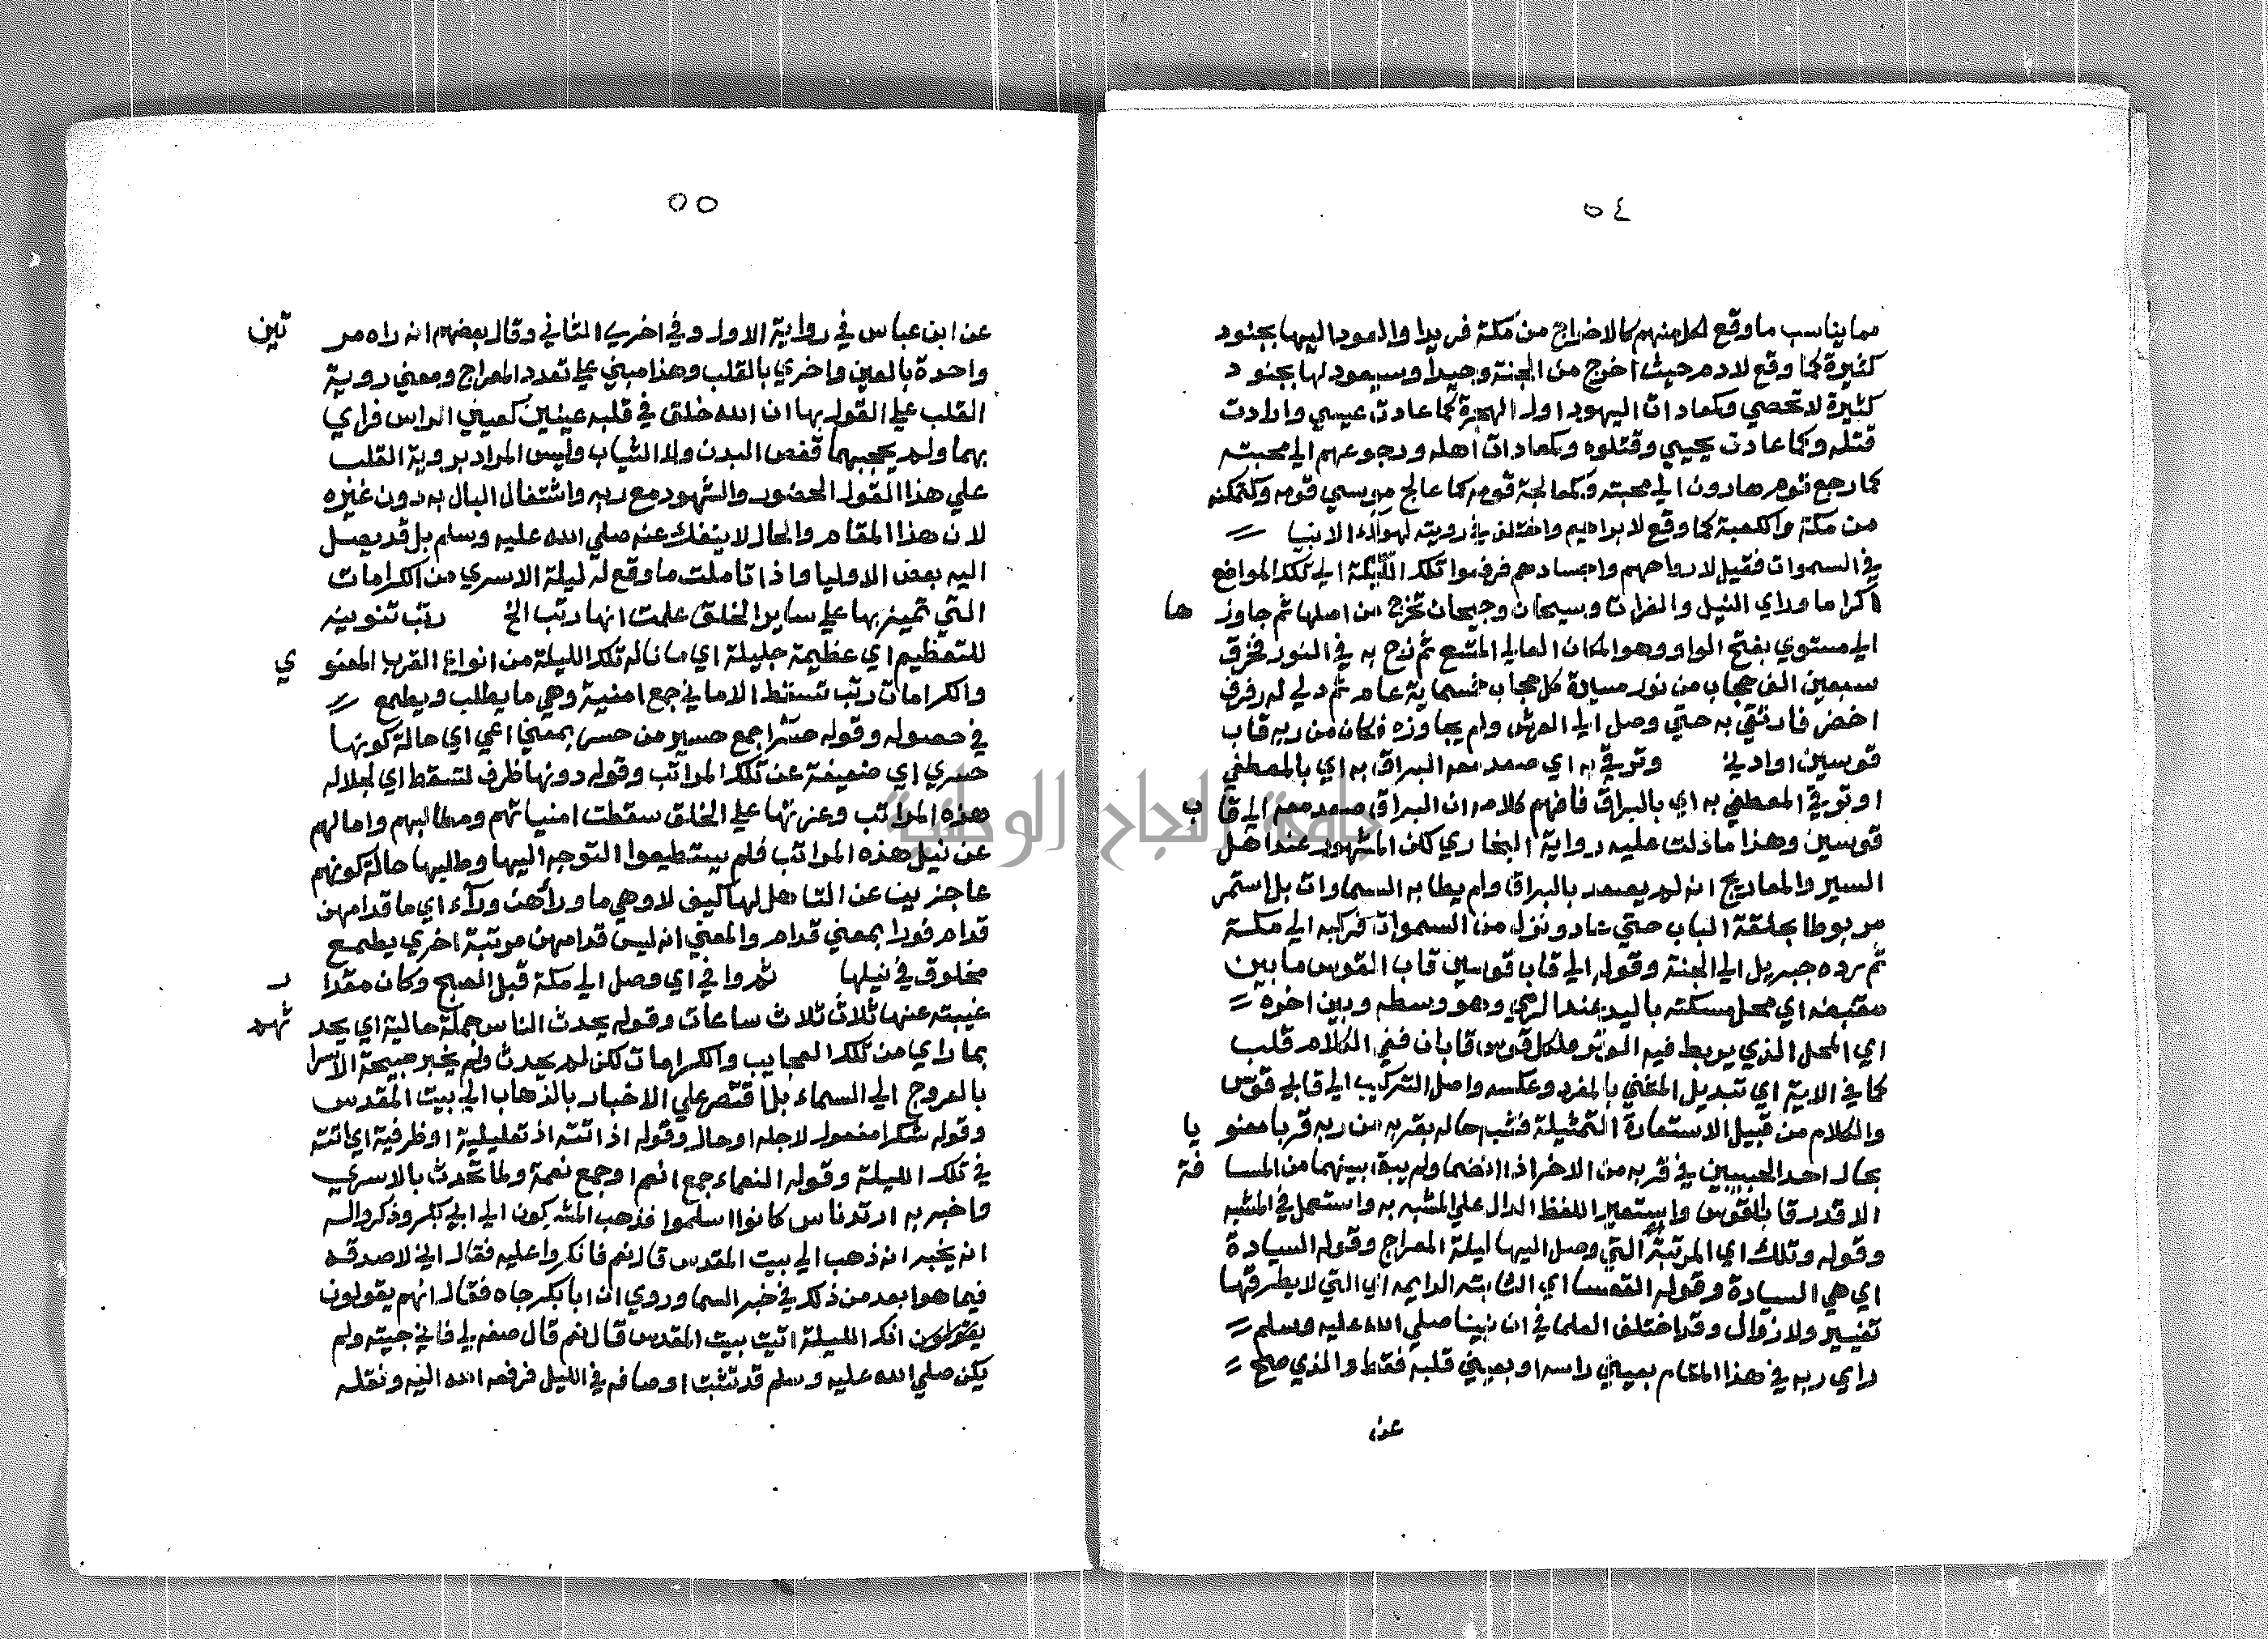 ٥٤
مما يناسب ما وقع لكل منهم كالاخراج من مكة فريدا والعود اليها بجنود
كثيرة كما وقع لادم حيث اخرج من الجنة وحيدا وسيعود لها بجنود
كثيرة لا تحصي وكمعادات اليهود اول الهجرة كما عادت عيسي وارادت
قتله وكما عادت يحيي وقتلوه وكمعادات اهله ورجوعهم الي محبته
كما رجع قوم هارون الي محبته وكمعالجة قومه كما عالج موسي قومه وكتمكنه
من مكة والكعبة كما وقع لابراهيم واختلف في رويته لهولاء الانبيا
في السموات فقيل لارواحهم واجسادهم فرفعوا تلك الليلة الي تلك المواضع
اكراما وراي النيل والفرات وسيحان وجيحان تخرج من اصلها ثم جاوزها
الي مستوي بفتح الواو وهو المكان العالي المتسع ثم زج به في النور فخرق
سبعين الف حجاب من نور مسيرة كل حجاب خمسماية عام ثم دلي له رفرف
اخضر فارتقي به حتي وصل الي العرش ولم يجاوزه فكان من ربه قاب
قوسين او ادني وترقي به اي صعد معه البراق به اي بالمصطفي
او ترقي المصطفي به اي بالبراق فافهم كلامه ان البراق صعد معه الي قاب
قوسين وهذا ما دلت عليه رواية البخاري لكن المشهور عند اهل
السير والمعاريج انه لم يصعد بالبراق ولم يطا به السماوات بل استمر
مربوطا بحلقة الباب حتي عاد ونزل من السموات فركبه الي مكة
ثم رده جبريل الي الجنة وقوله الي قاب قوسين قاب القوس ما بين
مقبضه اي محل مسكته باليد عند الرمي وهو وسطه وبين اخره
اي المحل الذي يربط فيه الوتر فلكل قوس قابان ففي الكلام قلب
كما في الاية اي تبديل المثني بالمفرد وعكسه واصل التركيب الي قابي قوس
والكلام من قبيل الاستعارة التمثيلة فشبه حاله بقربه من ربه قربا معنويا
بحال احد الحبيبين في قربه من الاخر اذا انضما ولم يبق بينهما من المسافة
الا قدر قاب القوس واستعير اللفظ الدال علي المشبه به واستعمل في المشبه
وقوله وتلك اي المرتبة التي وصل اليها ليلة المعراج وقوله السيادة
اي هي السيادة وقوله القعسا اي الثابتة الدايمه اي التي لا يطرقها
تغيير ولا زوال وقد اختلف العلما في ان نبينا صلي الله عليه وسلم
راي ربه في هذا المقام بعيني راسه او بعيني قلبه فقط والذي صح
عن
٥٥
عن ابن عباس في رواية الاول وفي اخري الثاني وقال بعضهم انه راه مرتين
واحدة بالعين واخري بالقلب وهذا مبني علي تعدد المعراج ومعني روية
القلب علي القول بها ان الله خلق في قلبه عينين كعيني الراس فراي
بهما ولم يحجبهما قفص البدن ولا الثياب وليس المراد بروية القلب
علي هذا القول الحضور والشهود مع ربه واشتغال البال به دون غيره
لان هذا المقام والحال لا ينفك عنه صلي الله عليه وسلم بل قد يصل
اليه بعض الاوليا واذا تاملت ما وقع له ليلة الاسري من الكرامات
التي تميز بها علي ساير الخلق علمت انها رتب الخ رتب تنوينه
للتعظيم اي عظيمة جليلة اي ما ناله تلك الليلة من انواع القرب المعنوي
والكرامات رتب تسقط الاماني جمع امنية وهي ما يطلب ويطمع
في حصوله وقوله حسرا جمع حسير من حسر بمعني اعي اي حالة كونها
حسري اي ضعيفة عن تلك المراتب وقوله دونها ظرف لتسقط اي لجلاله
هذه المراتب وعزتها علي الخلق سقطت امنياتهم ومطالبهم وامالهم
عن نيل هذه المراتب فلم يستطيعوا التوجه اليها وطلبها حالة كونهم
عاجزين عن التاهل لها كيف لا وهي ما وراهن ورآء اي ما قدامهن
قدام فورا بمعني قدام والمعني انه ليس قدامهن مرتبة اخري يطمع
مخلوق في نيلها ثم وافي اي وصل الي مكة قبل الصبح وكان مقدار
غيبته عنها ثلاث ثلاث ساعات وقوله يحدث الناس جملة حالية اي يحدثهم
بما راي من تلك العجايب والكرامات لكن لم يحدث ولم يخبر صبيحة الاسرا
بالعروج الي السماء بل اقتصر علي الاخبار بالذهاب الي بيت المقدس
وقوله شكرا مفعول لاجله او حال وقوله اذ اتته اذ تعليلية او ظرفية اي اتته
في تلك الليلة وقوله النعماء جمع انعم او جمع نعمة ولما تحدث بالاسري
واخبر به ارتد ناس كانوا اسلموا فذهب المشركون الي ابي بكر وذكروا له
انه يخبر انه ذهب الي بيت المقدس قال نعم فانكروا عليه فقال اني لاصدقه
فيما هو ابعد من ذلك في خبر السما وروي ان ابا بكر جاه فقال انهم يقولون
يقولون انك الليلة اتيت بيت المقدس قال نعم قال صفه لي فاني جيته ولم
يكن صلي الله عليه وسلم قد تثبت اوصافه في الليل فرفعه الله اليه ونقله
جامعة النجاح الوطنية